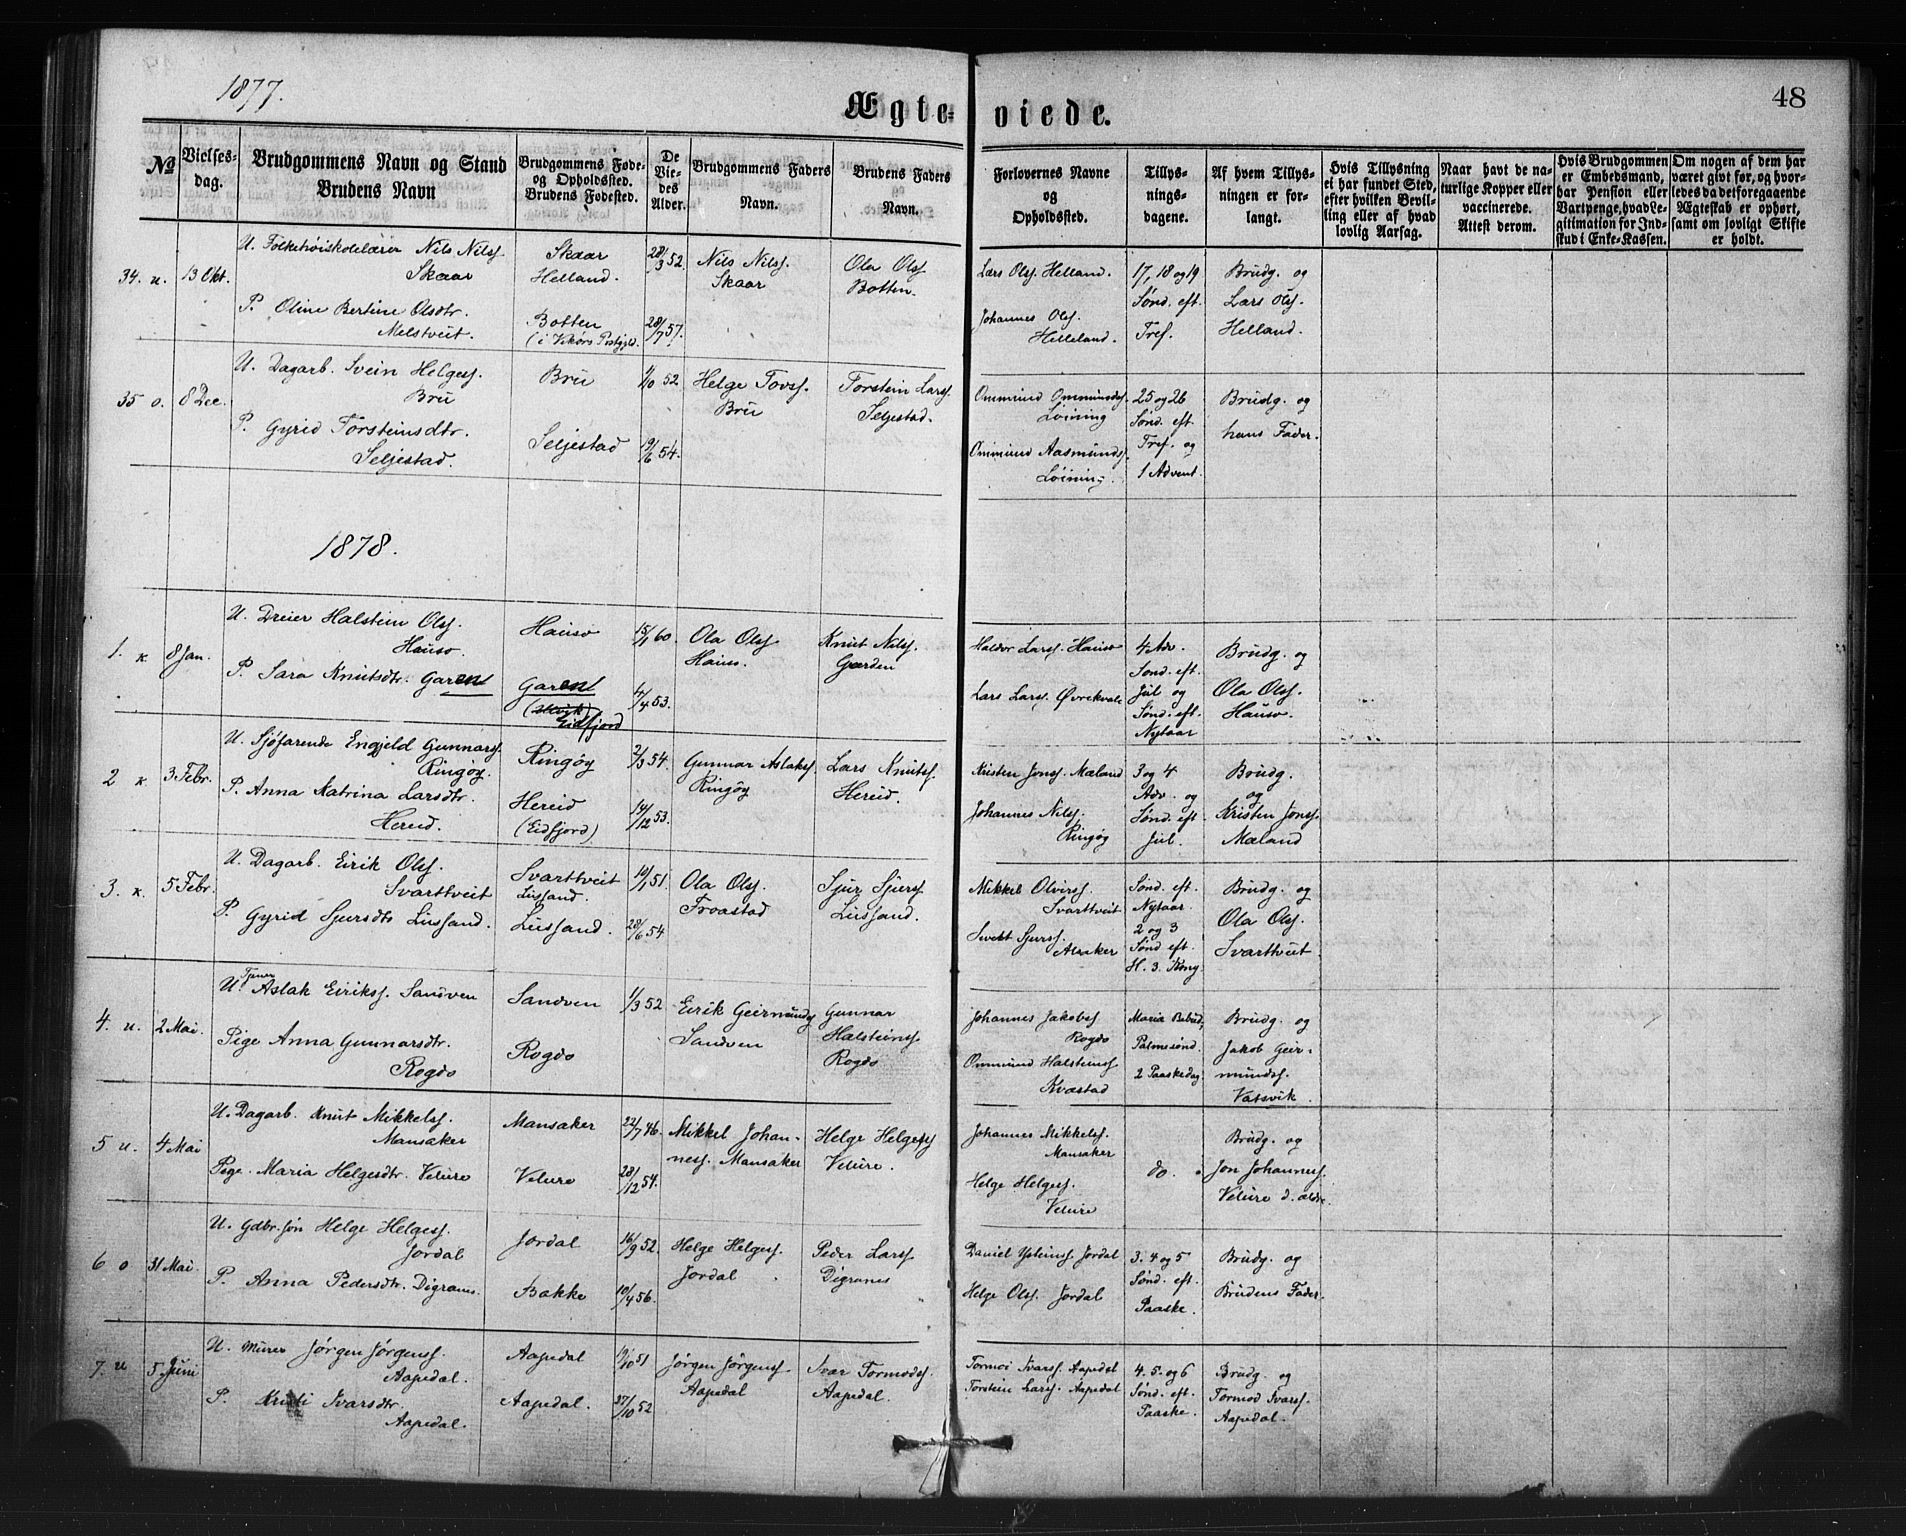 1877.
48
Ægteviede.
No
Vielsesdag.
Brudgommens Navn og Stand
Brudens Navn
Brudgommens Føde-
og Opholdssted.
Brudens Fødested.
De
Vie-
des
Alder.
Brudgommens Faders
Navn.
Brudens Faders
og
Navn.
Forlovernes Navne
og
Opholdssted.
Tillys-
nings-
dagene.
Af hvem Tillys-
ningen er for-
langt.
Hvis Tillysning
ei har fundet Sted,
efter hvilken Bevil-
ling eller af hvad
lovlig Aarsag.
Naar havt de na-
turlige Kopper eller
vaccinerede.
Attest derom.
Hvis Brudgommen
er Embedsmand,
har Pension eller
Vartpenge, hvad Le-
gitimation for Ind-
skud i Enke-Kassen.
Om nogen af dem har
været givt før, og hvor-
ledes da det foregaaende
Ægteskab er ophørt,
samt om lovligt Skifte
er holdt.
34. u. 13 Okt.
U. Folkehøiskolelærer Nils Nilss.
Skaar
P. Oline Bertine Olsdtr.
Melstveit.
Skaar
Helland.
Botten
(i Vikørs Præstgjeld.
28/3 52.
28/7 57.
Nils Nilss.
Skaar
Ola Olss
Botten
Lars Olss. Helland.
Johannes Olss.
Helleland.
17, 18 og 19
Sønd. eft.
Tref.
Brudg. og
Lars Olss.
Helland.
35 o. 8 Dec.
U. Dagarb. Svein Helgess.
Bru
P. Gyrid Torsteinsdtr.
Seljestad.
Bru
Seljestad
52.
19/6 54.
Helge Tovss.
Bru
Torstein Larss.
Seljestad.
Ommund Ommundss.
Løining
Ommund Aasmundss.
Løining.
25 og 26
Sønd. eft
Tref. og
1 Advent.
Brudg. og
hans Fader.
1878.
1. k. 8 Jan.
U. Dreier Halstein Olss.
Hauso.
P. Sara Knutsdtr. Garen
Hauso
Garen
(Ulvik)
Eidfjord
15/1 60.
4/4 53.
Ola Olss
Hauso.
Knut Nilss.
Garden
Haldor Larss. Hauso
Lars Larss. Øvrekvale
4 Adv.
Sond. eft.
Jul og
Sønd. eft.
Nytaar
Brudg. og
Ola Olss.
Hauso.
2 k. 3 Febr.
U. Sjøfarende Engjeld Gunnarss.
Ringøy.
P. Anna Katrina Larsdtr.
Hereid.
Ringøy
Hereid
(Eidfjord)
2/3 54.
14/12 53.
Gunnar Aslakss.
Ringöy
Lars Knutss.
Hereid.
Kristen Jonss. Mæland
Johannes Nilss.
Ringøy
3 og 4
Adv. og
Sønd. eft
Jul.
Brudg.
og
Kristen Jonss.
Mæland
3. k. 5 Febr.
U. Dagarb. Eirik Olss.
Svarttveit
P. Gyrid Sjursdtr Lussand.
Svarttveit
Lussand.
Lussand.
10/1 51.
28/6 54
Ola Olss.
Froastad
Sjur Sjurss
Lussand.
Mikkel Olvirss.
Svarttveit
Sjurss.
Alsaker
Sønd. eft.
Nytaar.
2 og 3
Sønd eft.
H. 3. Kong.
Brudg. og
Ola Olss.
Svarttveit.
4. u. 2 Mai.
U. Aslak Eirikss. Sandven
Pige Anna Gunnarsdtr.
Rogdo
Sandven
Rogdo
1/3 52
Eirik Geirmundss
Sandven
Gunnar
Halsteinss.
Rogdo
Johannes Jakobss
Rogdo
Ommund Halsteinss
Kvæstad
Maria Bebud.
Palmesønd.
2 Paaskedag
Brudg. og
Jakob Geir-
mundss.
Vatsvik.
5 u. 4 Mai
U. Dagarb. Knut Mikkelss.
Mansaker
Pige. Maria Helgesdtr. Velure
Mansaker
Velure
22/7 46.
28/12 54.
Mikkel Johan-
ness. Mansaker
Helge Helgess
Velure.
Johannes Mikkelss.
Mansaker
Helge Helgess.
Velure
do.
Brudg. og
Jon Johanness.
Velure d. ældre.
6 o 31 Mai.
U. Gdbr. søn Helge Helgess.
Jordal
P. Anna Pedersdtr. Digranes.
Jordal
Bakke
16/9 52.
10/4 56.
Helge Helgess.
Jordal.
Peder Larss
Digranes
Daniel Ysteinss Jordal
Helge Olss. Jordal
3. 4 og 5
Sønd. eft.
Paaske.
Brudg. og
Brudens Fader.
7. u 5 Juni
U. Murer Jørgen Jørgenss.
Aapedal.
P. Kristi Ivarsdtr.
Aapedal.
Aapedal
Aapedal.
19/10 51
27/10 52
Jørgen Jørgenss
Aapedal
Ivar Tormodss.
Aapedal.
Tormod Ivarss. Aapedal
Torstein Larss. Aapedal
4. 5. og 6
Sønd. eft.
Paaske.
Brudg. og
Tormod Ivarss.
Aapedal.